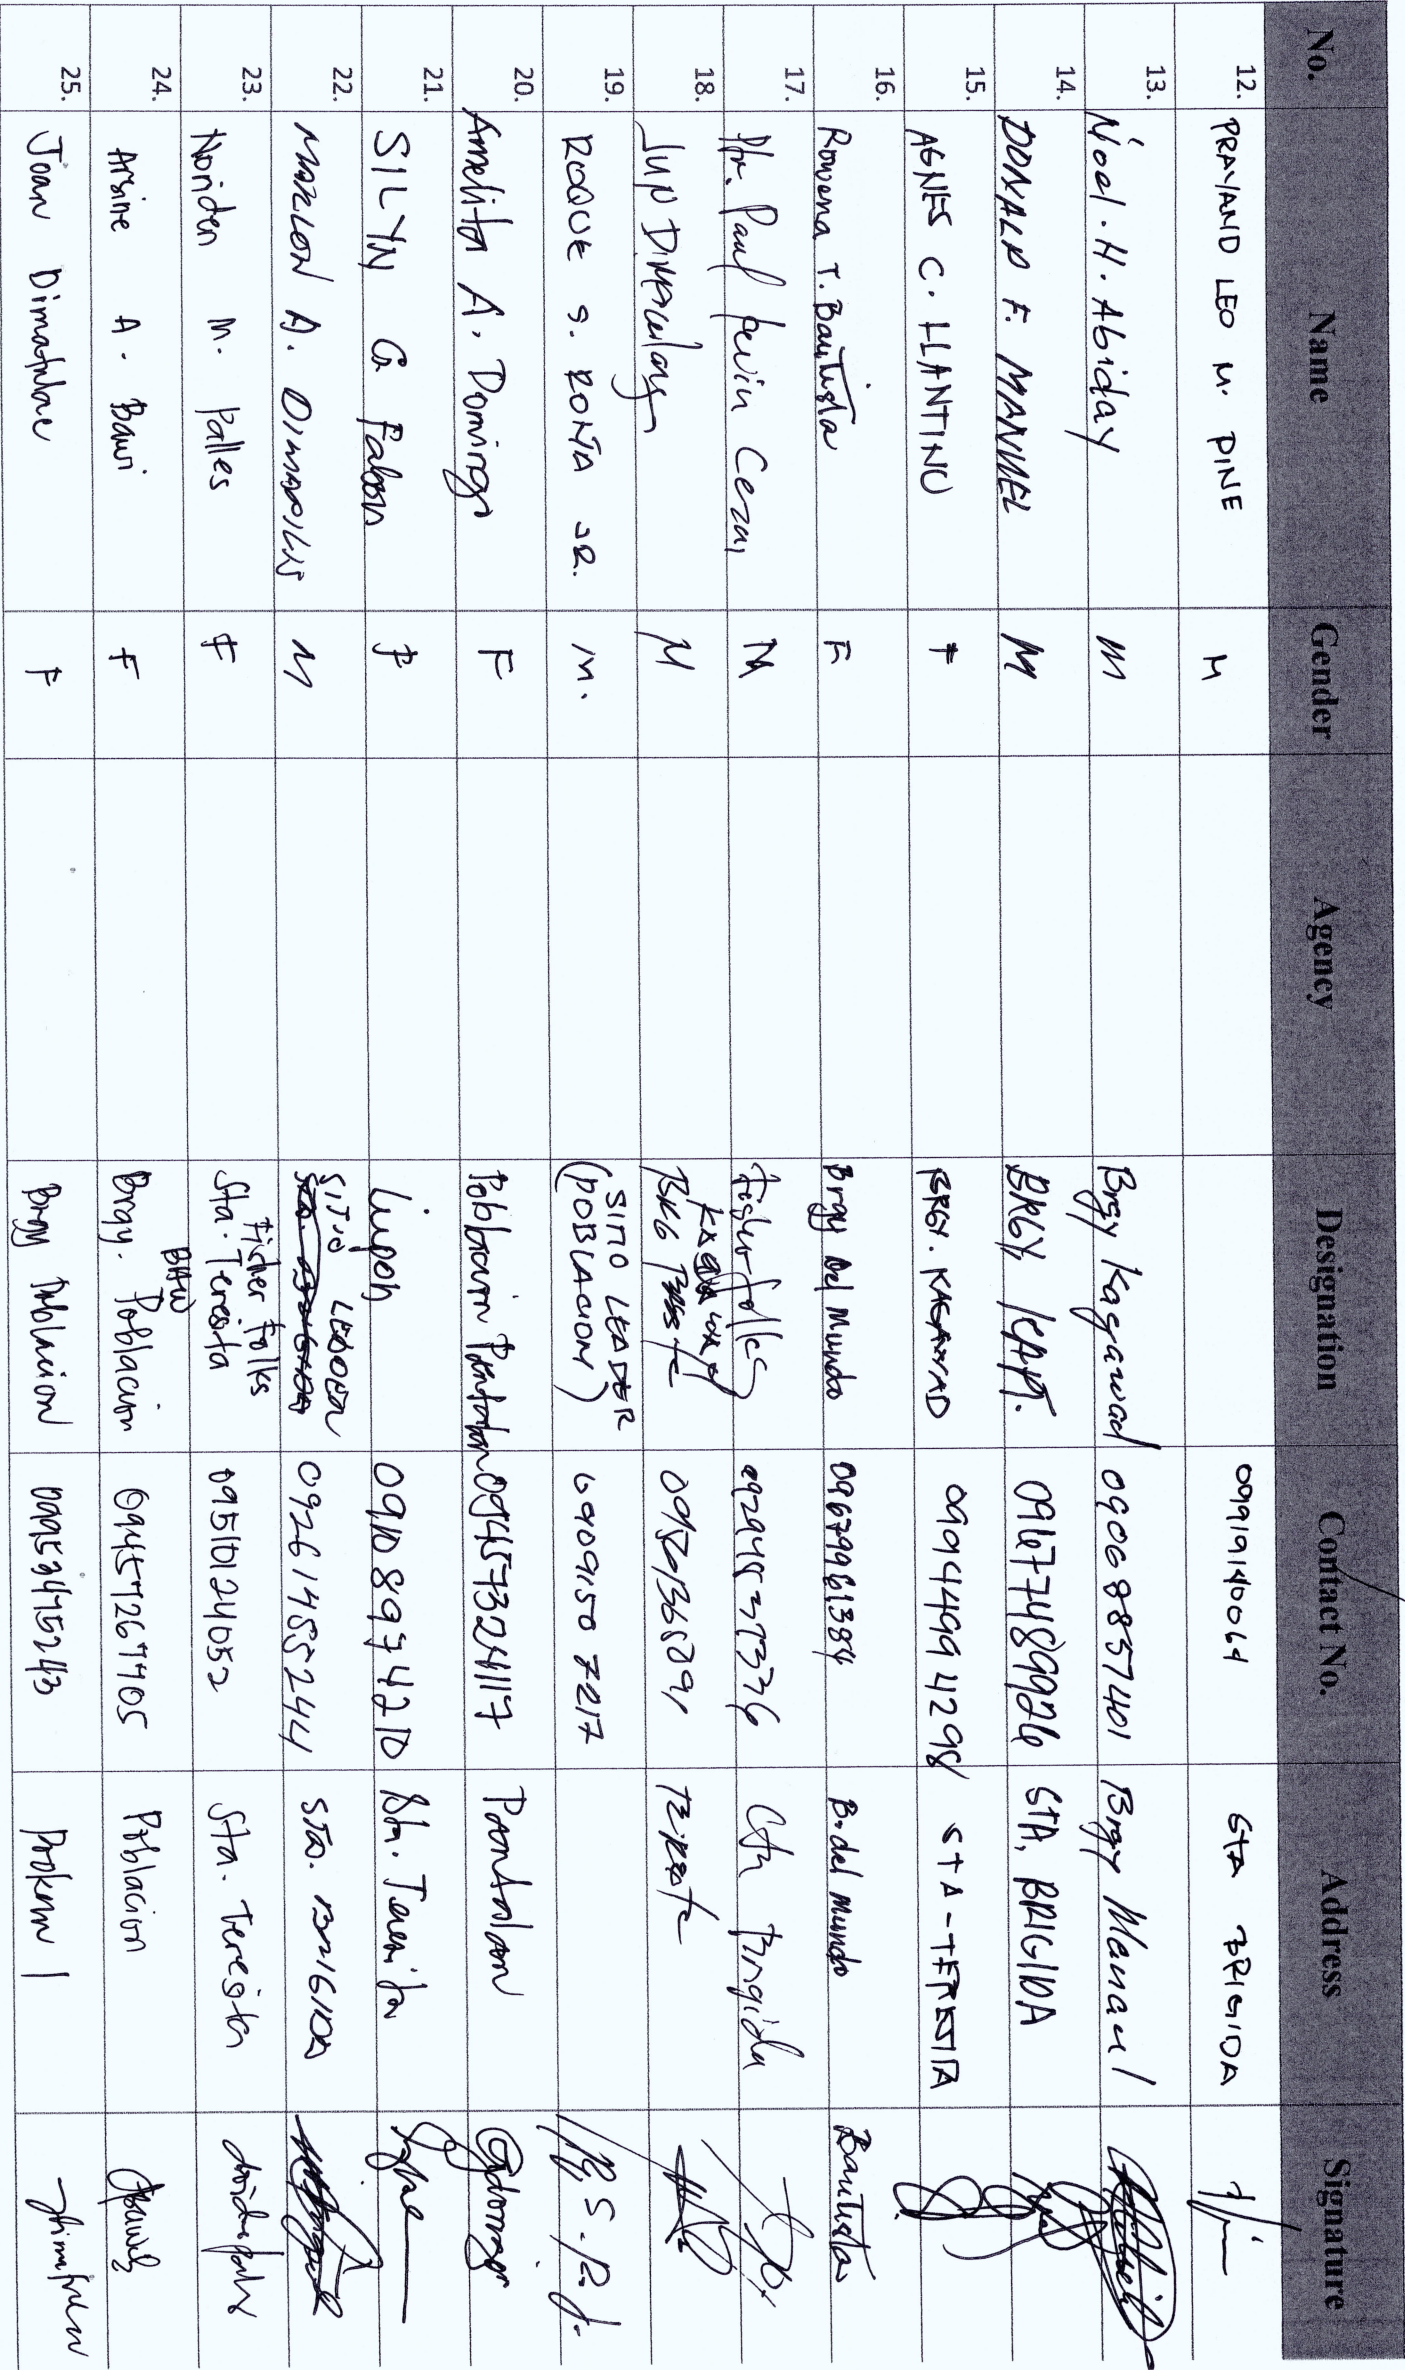 No. Name Gender Agency Designation Contact No. Address Signature
12. PRAYAND LEO M. PINE M 09919140064 STA BRIGIDA
13. Noel . H. Abiday M Brgy Kagawad 09068857401 Brgy Manaul
14. DONALD F. MANUEL M BRGY CAPT. 09677489926 STA. BRIGIDA
15. AGNES C. LLANTINO F BRGY. KAGAWAD 09944994298 STA-TERESITA
16. Rowena T. Bautista F Brgy Del Mundo 09679961384 B. del mundo Bautista
17. Ptr. Paul Kevin Cezar M Fisher folks Sta Brigida
18. JUN Dimaculangan M KAGAWAD
BRG
19. ROQUE S. RONTA JR. M. SITIO LEADER
(POBLACION) 09091507217
20. Amelita A. Domingo F Poblacion Pantalan 09457324117 Pantalan
21. SILYN G Fabon F Lupon 09108974210 Sta. Teresita
22. MARLON A. M SITIO LEADER
09261485244 STA. BRIGIDA
23. Noriden M. Palles F Fisher Folks
Sta. Teresita 09510124052 Sta. Teresita
24. Arsine A. Bawi F BHW
Brgy. Poblacion 09457267705 Poblacion
25. Joan Dimatulac F Brgy Poblacion 09953475243